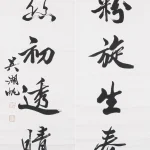 粉旋生春
丝初透晴
吴湖帆